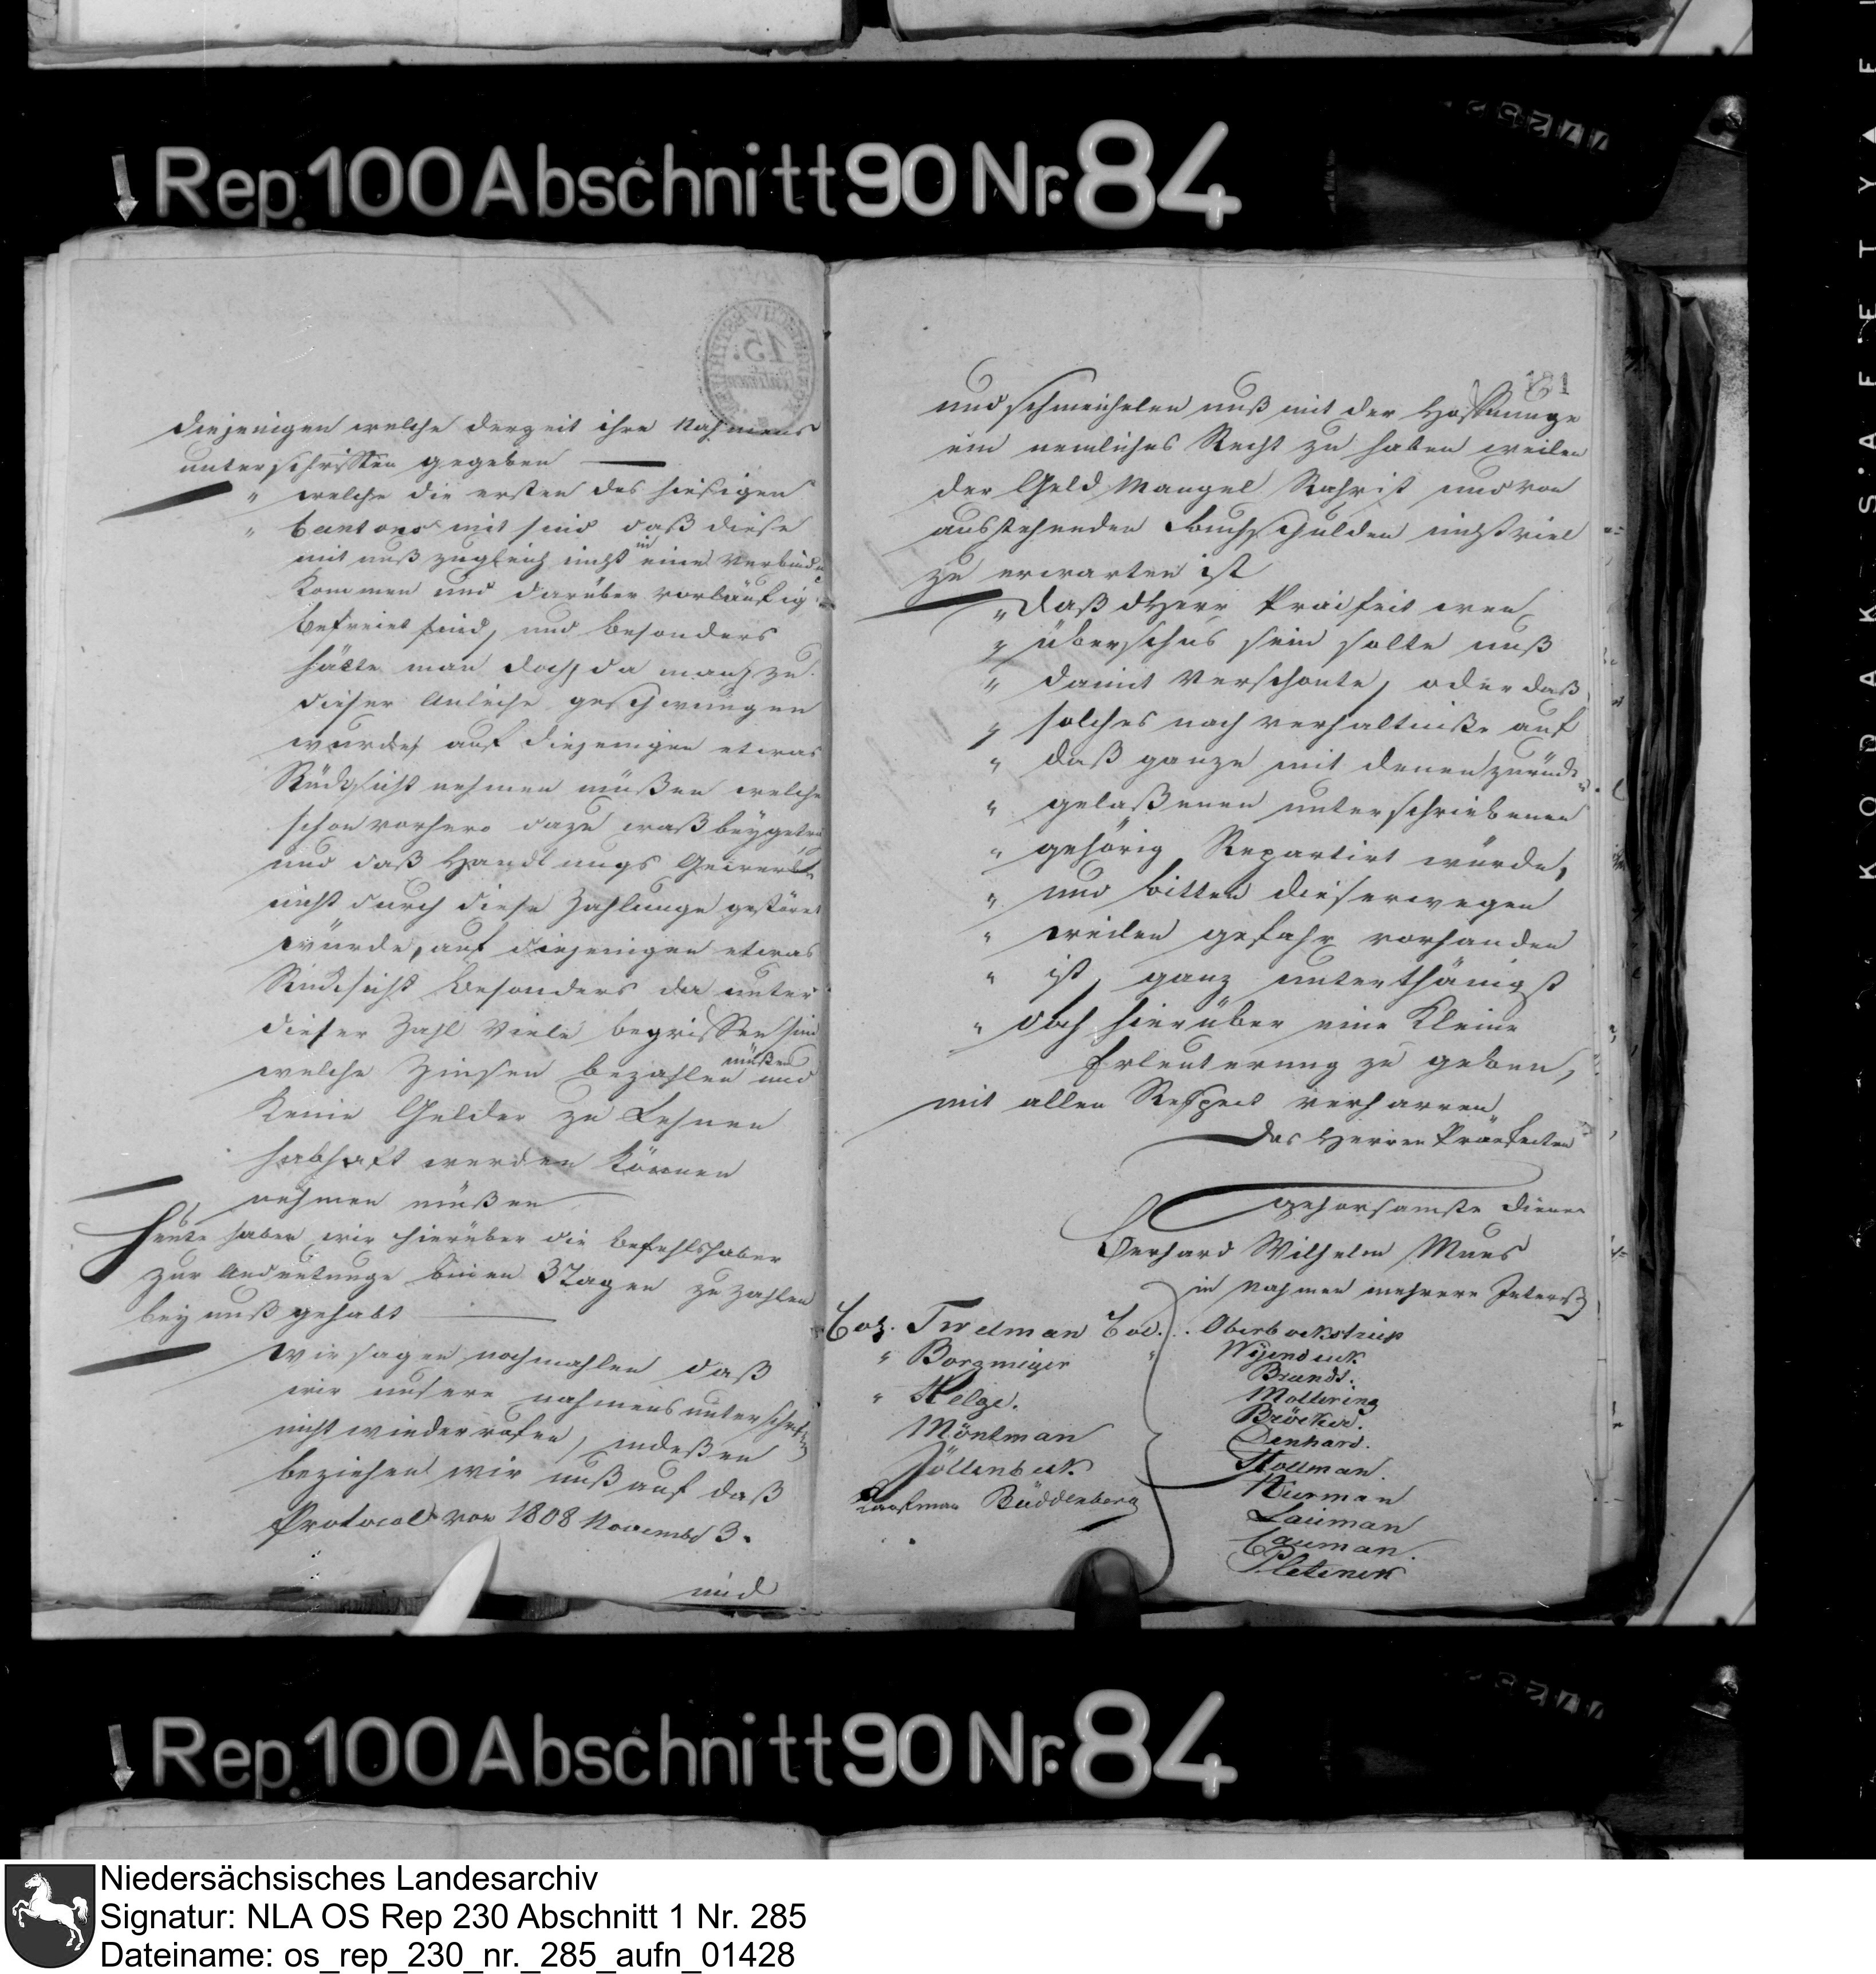 Rep. 100 Abschnitt 90 Nr. 84
15.
diejenigen welche derzeit ihre Nahmens
unterschriften gegeben
" welche die ersten des hiesigen
" Cantons mit sind daß diese
mit unß zugleich nicht in eine Verbind
kommen und darüber vorläufig
befreiet sind, und besonders
hätte man doch, da man zu
dieser Anleihe geschwungen
wurde, auf diejenigen etwas
Rücksicht nehmen müßen welche
schon vorhero dazu waß beygetra
und daß Handlungs Gewerbe
nicht durch diese Zahlunge gestöret
würde, auf diejenigen etwas
Rücksicht besonders da unter
dieser Zahl Viele begriffen sind
welche Zinsen bezahlen müßen und
keine Gelder zu Lehnen
habhaft werden können
nehmen müßen
Heute haben wir hierüber die befehlshaber
zur Andeutunge binen 3 Tagen zu zahlen
bey unß gehabt
Wir sagen nochmahlen daß
wir unsere nahmens unterschriften
nicht wiederrufen, indeßen
beziehen wir unß auf daß
Protocol von 1808 Novembr 3.
und
181
und schmeichelen unß mit der Hoffnunge
ein nemliches Recht zu haben weilen
der Geld Mangel Rahr ist und von
ausstehenden Buchschulden nicht viel
zu erwarten ist
" daß dHerr Präifeit wen
" überschus sein solte unß
" damit Verschonte, oder daß
" solches nach verhaltniße auf
" daß ganze mit denen zurück
" gelaßenen unterschriebenen
" gehörig Repartirt würde,
" und bitten dieserwegen
" weilen gefahr vorhanden
" ist, ganz unterthänigst
" doch hierüber eine kleine
Erleuterung zu geben,
mit allen Respect verharren
Des Herren Präefecten
gehorsamste Diener
Gerhard Wilhelm Mues
in Nahmen mehrere Interess
Col. Twelman Col. . Oberbockstrup
" Borgmeiyer " Wyendeick
Brandt.
" Helge. Mollering
Bröcker.
Möntman Denhard.
Jöllenbeck Stollman.
Kurman
Kaufman Büddenberg Lauman
Cauman.
Pletenek
Rep. 100 Abschnitt 90 Nr. 84
Niedersächsisches Landesarchiv
Signatur: NLA OS Rep 230 Abschnitt 1 Nr. 285
Dateiname: os_rep_230_nr._285_aufn_01428